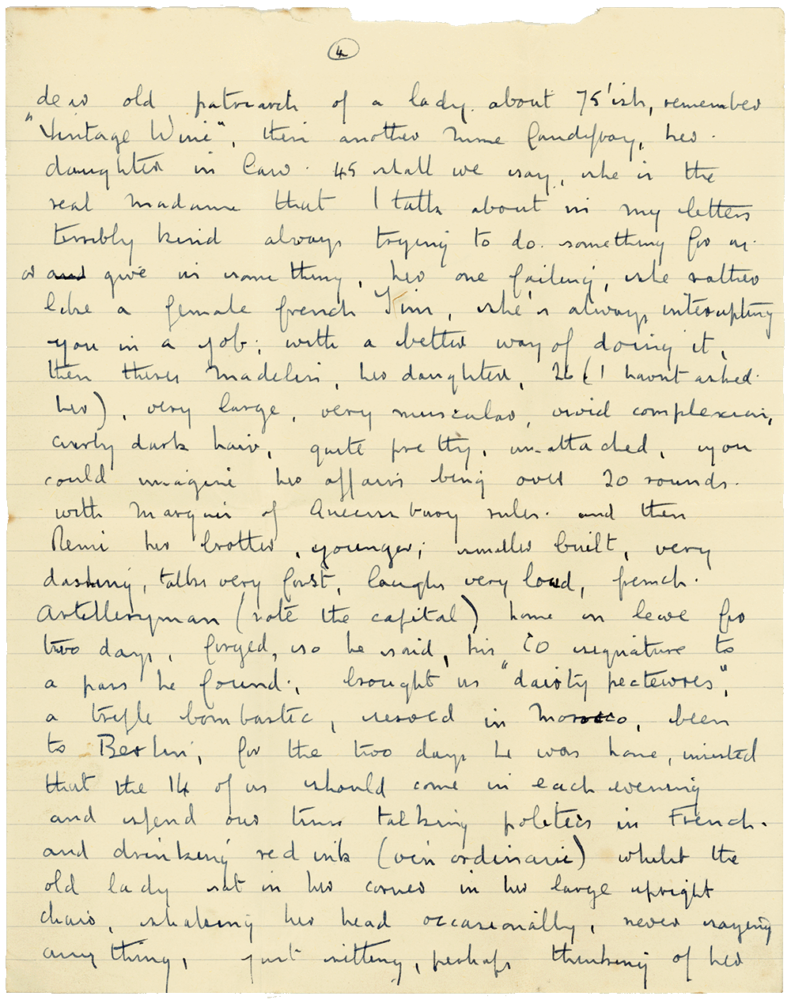 4
dear old patriarch of a lady. about 75'ish, remember
"Vintage Wine", then another Mme Candifray, her.
daughter in law. 45 shall we say, she is the
real madame that I talk about in my letters
terribly kind always trying to do. something for us.
or and give us something, her one failing, she rather
like a female french Jim, she's always interupting
you in a job; with a better way of doing it,
then theres Madelein, her daughter, 26 (I havnt asked.
her), very large, very muscular, vivid complexion,
curly dark hair, quite pretty, un-attached, you
could imagine her affairs being over 20 rounds.
with Marquis of Queensbury rules. and then
Remi her brother, younger; smaller built, very
dashing, talks very fast, laughs very loud, french.
Artilleryman (note the capital) home on leave for
two days, forged, so he said, his CO signature to
a pass he found., brought us "dairty pectewres",
a trifle bombastic, served in Morocco, been
to Berlin, for the two days he was home, insisted
that the 14 of us should come in each evening
and spend our time talking politics in French.
and drinking red ink (vin ordinarie) whilst the
old lady sat in her corner in her large upright
chair, shaking her head occasionally, never saying
any thing, just sitting, perhaps thinking of her